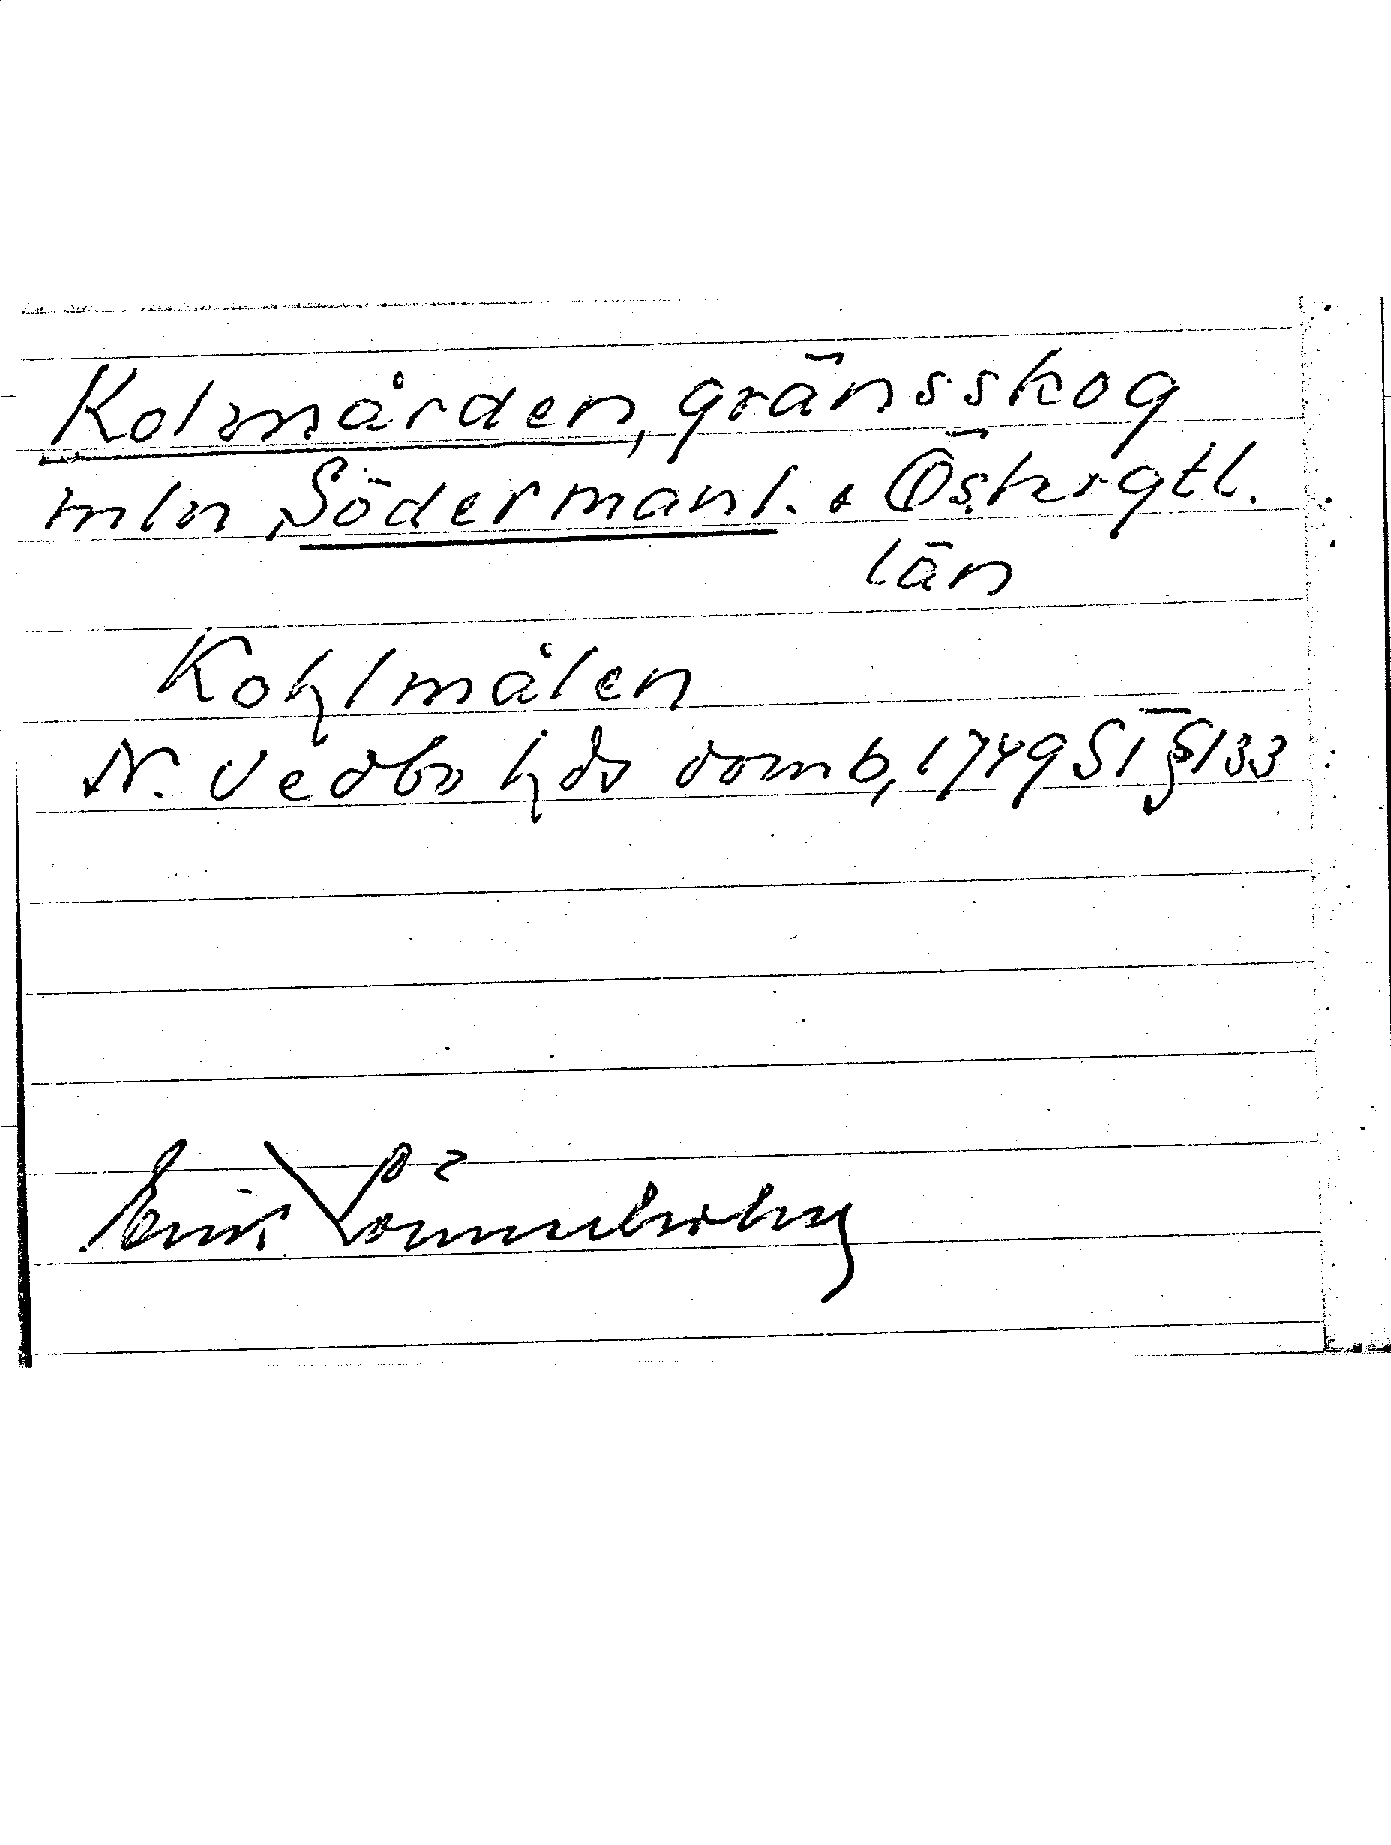 Kolmården, gränsskog
mln Södermanl. & Östergtl.
län
Kohlmålen
N. Vedbo hds domb, 1749 S1 § 133
Erik